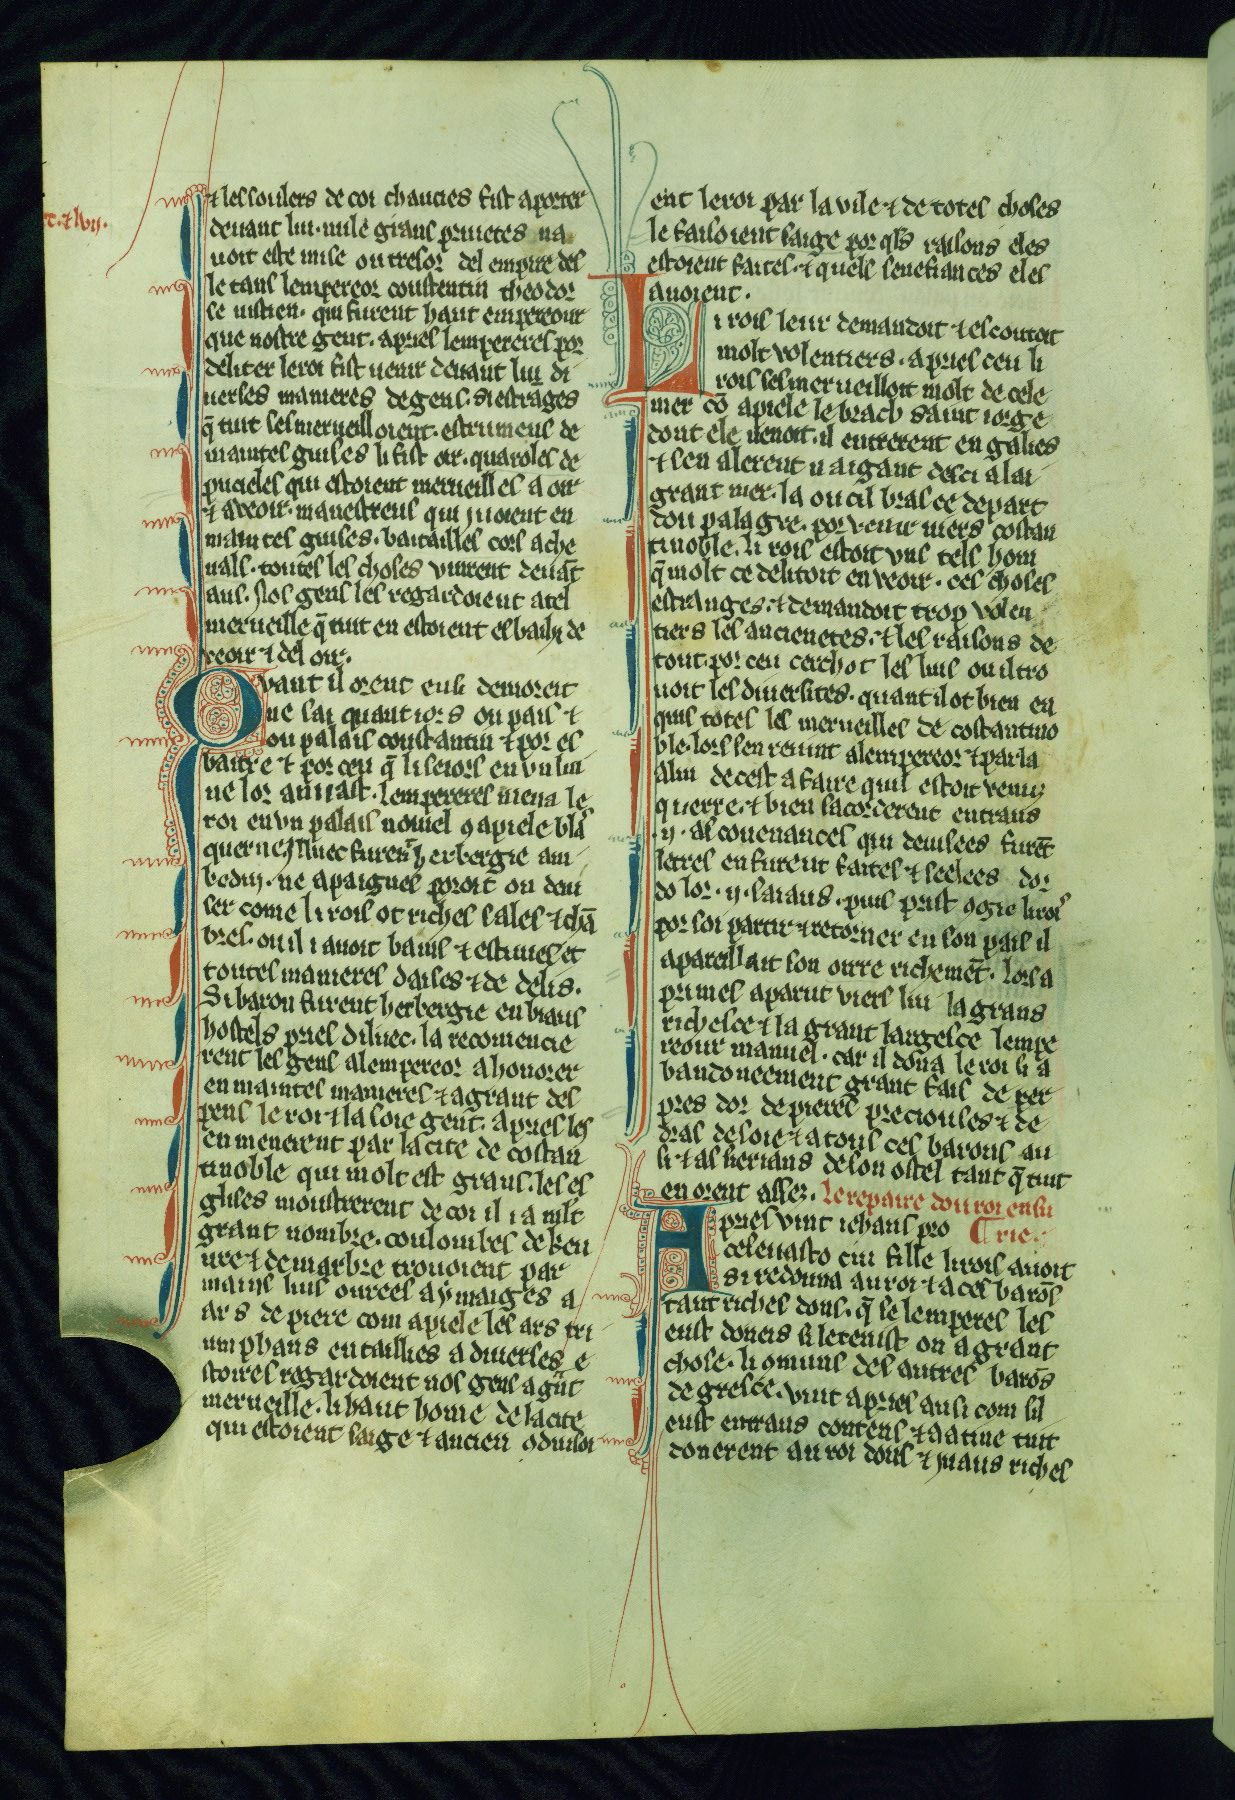 ⁊ les soulers de coi chaucies fist aporter
deuant lui. nule grans priuetes na
uoit este mise ou tresor del empire des
le tans lempereor coustentin theodor
se iustien. qui furent haut empereour
que nostre gent. apries lempereres por
deliter le roi fist uenir deuant lui di
uerses manieres de gens. si estrages
q̄ tuit ses merueilloient. estrumens de
maintes guises li fist oir. quaroles de
puceles qui estoient merueilles a oir
⁊ a veoir. manestreus qui iuoient en
maintes guises. baitailles cors a che
uals. toutes les choses vinrent deuāt
aus. Nos gens les regardoient a tel
merueille q̄ tuit en estoient esbaihi de
veoir ⁊ del oir.
Qvant il orent ensi demoreit
ne sai quant iors ou pais ⁊
ou palais constantin ⁊ por es
baitre ⁊ por ceu q̄ li seiors en vn lui
ne lor anuiast. lempereres mena le
roi en vn palais nouiel ꝯ apiele bla
querne Illuec furent herbergie am
bedui. ne apaignes poroit on deui
ser come li rois ot riches sales ⁊ chā
bres. ou il i auoit bains ⁊ estuues et
toutes manieres daises ⁊ de delis.
Si baron furent herbergie en biaus
hostels pries diluec. la recomencie
rent les gens alempereor a honorer
en maintes manieres ⁊ a grant des
pens le roi ⁊ la soie gent. apries les
en menerent par la cite de costan
tinoble qui molt est grans. les es
glises moustrerent de coi il i a mlt
grant nombre. coulombes de keu
ure ⁊ de marbre trouoient par
mains luis ourees a ymaiges a
ars de piere com apiele les ars tri
umphans entaillies a diuerses e
stoires regardoient nos gens a g̃nt
merueille. li haut home de la cite
qui estoient saige ⁊ ancien ꝯduisoi
ent le roi par la vile ⁊ de totes choses
le faisoient saige por q̄ls raisons eles
estoient faites. ⁊ queils senefiances eles
auoient.
Li rois leur demandoit ⁊ escouteit
molt volentiers. apries ceu li
rois ses merueilloit molt de cele
mer cō apiele le brach saint iorge
dont ele uenoit. il entrerent en galies
⁊ sen alerent naigant desci a lai
grant mer. la ou cil bras ce depart
dou palagre. por venir uiers costan
tinoble. li rois estoit vns tels hom
q̄ molt ce delitoit en veoir. ces choses
estranges. ⁊ demandoit trop volen
tiers les ancienetes. ⁊ les raisons de
tout. por ceu cerchot les luis ou il tro
uoit les diuersites. quant il ot bien en
quis totes les merueilles de costantino
ble. lors sen reuint alempereor ⁊ parla
a lui de cest afaire quil estoit venus
querre. ⁊ bien sacorderent entraus
.ij. as couenances qui deuisees furēt
letres en furent faites ⁊ seelees dor
do lor .ij. saiaus. puis prist ꝯgie li rois
por soi partir ⁊ retorner en son pais il
apareillait son oirre richemēt. lors a
primes aparut viers lui la grans
richesce ⁊ la grant largesce lempe
reour manuel. car il dona le roi si a
bandoneement grant fais de per
pres dor de pieres precieuses ⁊ de
dras de soie ⁊ a tous ces barons au
si ⁊ as serians de son ostel tant q̄ tuit
en orent assez. Le repaire dou roi en su
Apries vint iehans pro rie.
celeuasto cui fille li rois auoit
si redonna au roi ⁊ a ces barōs
tant riches dons. q̄ se lemperes les
eust doneis si le tenist on a grant
chose. li omuns des autres barōs
de gresce. vint apries ausi com sil
eust entraus contens ⁊ aatine tuit
donerent au roi dons ⁊ ioiaus riches
c. ⁊ lvij.